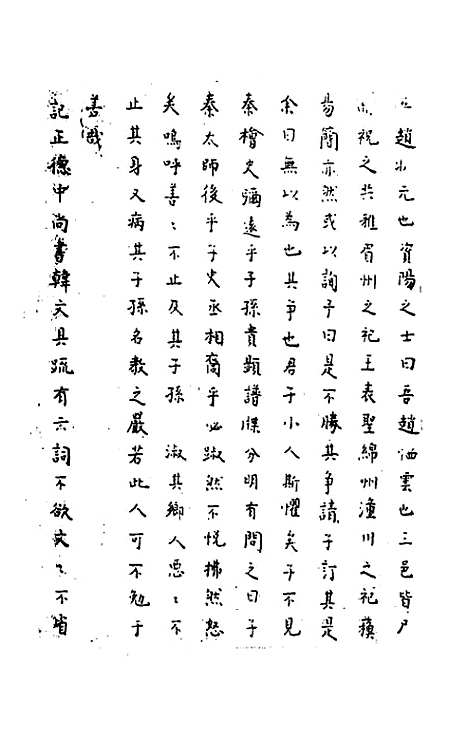 趙 元也資陽之士曰吾趙 雲也三邑皆尸
祝之與雅眉州之祀王表聖綿州潼川之祀蘇
易簡亦然或以詢予曰是不勝其爭請予訂其是
余曰無以為也其爭也君子小人斯懼矣子不見
秦檜史彌遠乎子孫貴顯譜牒分明有問之曰子
秦太師後乎子史丞相裔乎必踧然不悅拂然怒
矣嗚呼善〻不止及其子孫 淑其鄉人惡〻不
止其身又病其子孫名教之嚴若此人可不勉于
善哉
記正德中尚書韓文具疏有云詞不欲文〻不省